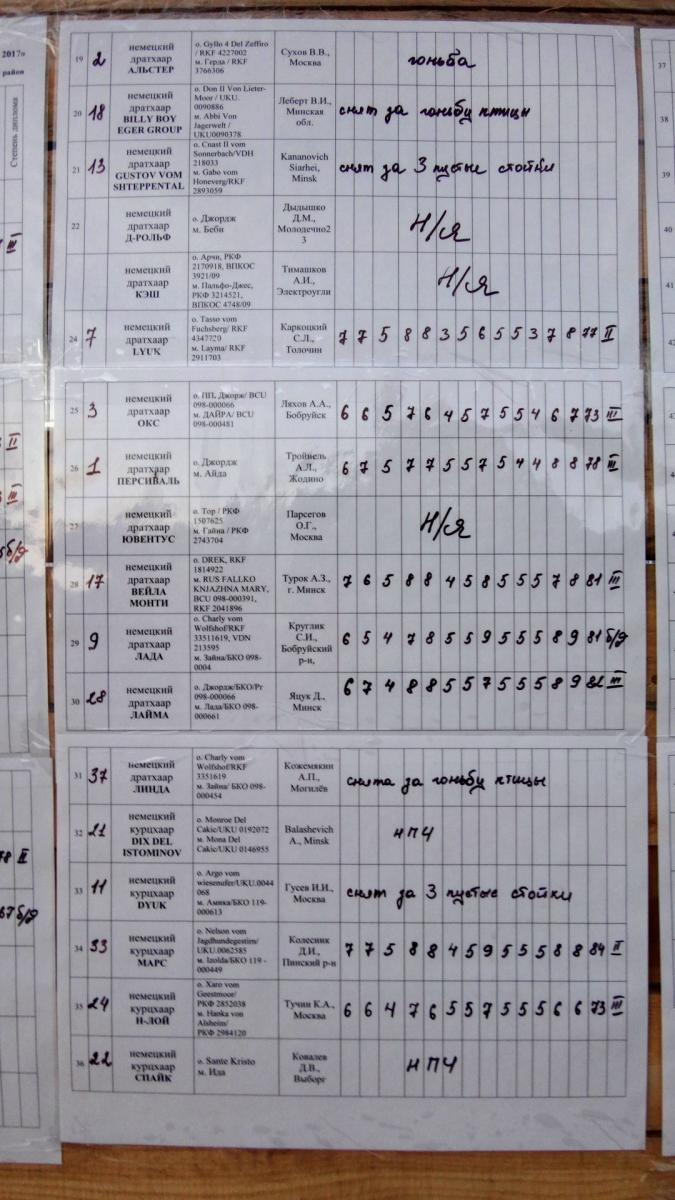 2017»
район
Степень диплома
19 2 немецкий дратхаар АЛЬСТЕР о. Gyllo 4 Del Zeffiro / RKF 4227002 м. Герда / RKF 3766306 Сухов В.В., Москва гоньба
20 18 немецкий дратхаар BILLY BOY EGER GROUP о. Don II Von Lieter-Moor / UKU. 0090886 м. Abbi Von Jagerwelt / UKU0090378 Леберт В.И., Минская обл. снят за гоньбу птицы
21 13 немецкий дратхаар GUSTOV VOM SHTEPPENTAL о. Cnast II vom Sonnerbach/VDH 218033 м. Gabo vom Honeverg/RKF 2893059 Kananovich Siarhei, Minsk снят за 3 пустые стойки
22 немецкий дратхаар Д-РОЛЬФ о. Джордж м. Беби Дыдышко Д.М., Молодечно2 3 Н/я
немецкий дратхаар КЭШ о. Арчи, РКФ 2170918, ВПКОС 3921/09 м. Пальфо-Джес, РКФ 3214521, ВПКОС 4748/09 Тимашков А.И., Электроугли Н/я
24 7 немецкий дратхаар LYUK о. Tasso vom Fuchsberg/ RKF 4347720 м. Layma/ RKF 2911703 Каркоцкий С.Л., Толочин 7 7 5 8 8 3 5 6 5 5 3 7 8 77 II
25 3 немецкий дратхаар ОКС о. ПП, Джорж/ BCU 098-000066 м. ДАЙРА/ BCU 098-000481 Ляхов А.А., Бобруйск 6 6 5 7 6 4 5 7 5 5 4 6 7 73 III
26 1 немецкий дратхаар ПЕРСИВАЛЬ о. Джордж м. Айда Тройнель А.Л., Жодино 6 7 5 7 7 5 5 7 5 4 4 8 8 78 III
27 немецкий дратхаар ЮВЕНТУС о. Тор / РКФ 1507625 м. Гайна / РКФ 2743704 Парсегов О.Г., Москва Н/я
28 17 немецкий дратхаар ВЕЙЛА МОНТИ о. DREK, RKF 1814922 м. RUS FALLKO KNJAZHNA MARY, BCU 098-000391, RKF 2041896 Турок А.З., г. Минск 7 6 5 8 8 4 5 8 5 5 5 7 8 81 III
29 9 немецкий дратхаар ЛАДА о. Charly vom Wolfshof/RKF 33511619, VDN 213595 м. Зайна/БКО 098-0004 Круглик С.И., Бобруйский р-н, 6 5 4 7 8 5 5 9 5 5 5 8 9 81 б/д
30 28 немецкий дратхаар ЛАЙМА о. Джордж/БКО/Рг 098-000066 м. Лада/БКО 098-000661 Яцук Д., Минск 6 7 4 8 8 5 5 7 5 5 5 8 9 82 III
31 37 немецкий дратхаар ЛИНДА о. Charly vom Wolfshof/RKF 3351619 м. Зайна/ БКО 098-000454 Кожемякин А.П., Могилёв снята за гоньбу птицы
32 21 немецкий курцхаар DIX DEL ISTOMINOV о. Monroe Del Cakic/UKU 0192072 м. Mona Del Cakic/UKU 0146955 Balashevich A., Minsk НПЧ
33 11 немецкий курцхаар DYUK о. Argo vom wiesenufer/UKU.0044 068 м. Амика/БКО 119-000613 Гусев И.И., Москва снят за 3 пустые стойки
34 33 немецкий курцхаар МАРС о. Nelson vom Jagdhundegestim/ UKU.0062585 м. Izolda/БКО 119 - 000449 Колесник Д.И., Пинский р-н 7 7 5 8 8 4 5 9 5 5 5 8 8 84 II
35 24 немецкий курцхаар Н-ЛОЙ о. Xaro vom Geestmoor/ РКФ 2852038 м. Hanka von Alsheim/ РКФ 2984120 Тучин К.А., Москва 6 6 4 7 6 5 5 7 5 5 5 6 6 73 III
36 22 немецкий курцхаар СПАЙК о. Sante Kristo м. Ида Ковалев Д.В., Выборг НПЧ
37
38
39
40
41
42